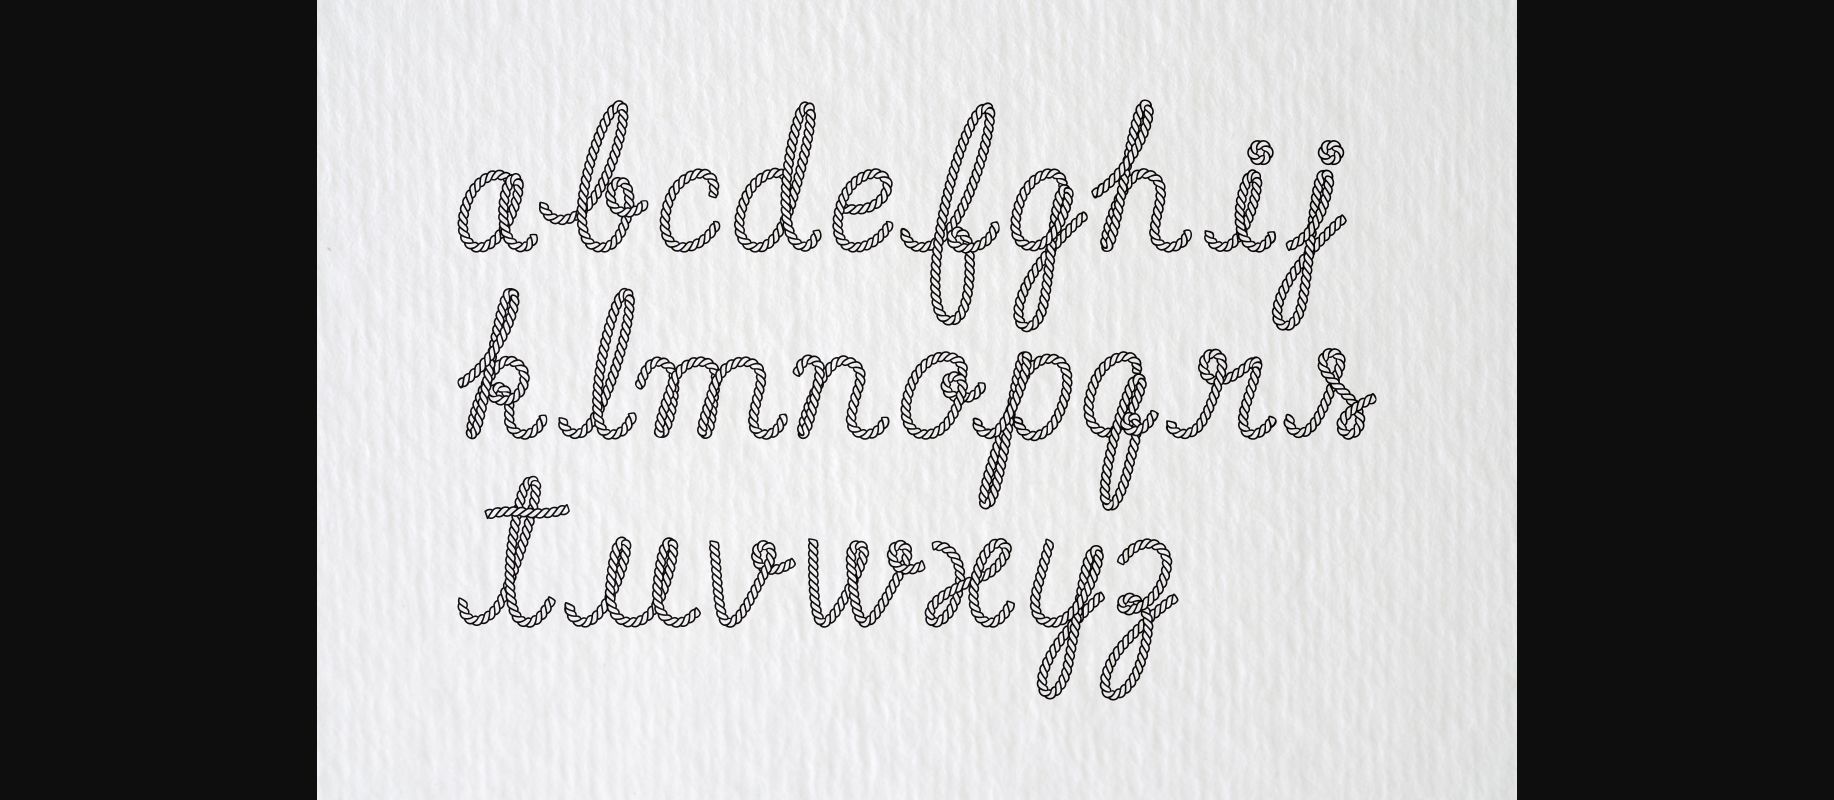 abcdefghij
klmnopqrs
tuvwxyz